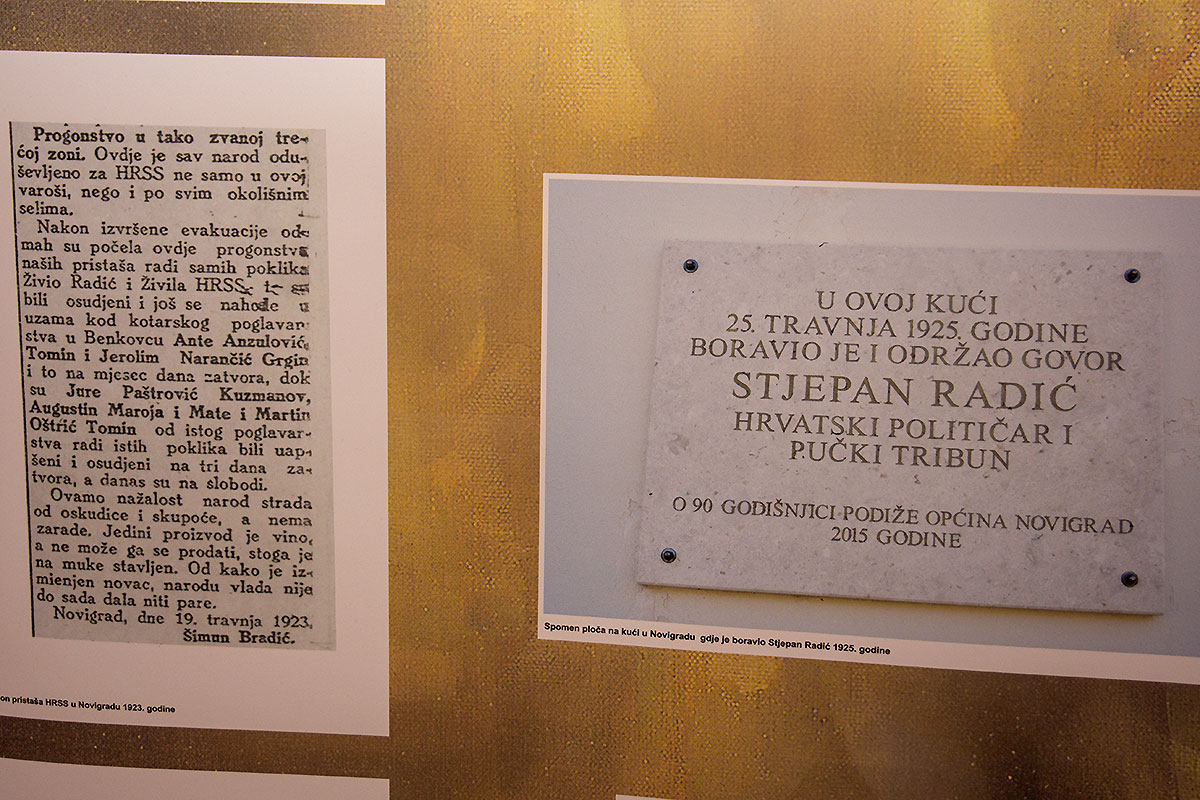 Progonstvo u tako zvanoj tre-
ćoj zoni. Ovdje je sav narod odu-
ševljeno za HRSS ne samo u ovoj
varoši, nego i po svim okolišnim
selima.
Nakon izvršene evakuacije od-
mah su počela ovdje progonstva
naših pristaša radi samih poklika
Živio Radić i Živila HRSS, te su
bili osudjeni i još se nahode u
uzama kod kotarskog poglavar-
stva u Benkovcu Ante Anzulović,
Tomin i Jerolim Narančić Grgin
i to na mjesec dana zatvora, dok
su Jure Paštrović Kuzmanov,
Augustin Maroja i Mate i Martin
Oštrić Tomin od istog poglavar-
stva radi istih poklika bili uap-
šeni i osudjeni na tri dana za-
tvora, a danas su na slobodi.
Ovamo nažalost narod strada
od oskudice i skupoće, a nema
zarade. Jedini proizvod je vino,
a ne može ga se prodati, stoga je
na muke stavljen. Od kako je iz-
mienjen novac, narodu vlada nije
do sada dala niti pare.
Novigrad, dne 19. travnja 1923.
Šimun Bradić.
on pristaša HRSS u Novigradu 1923. godine
U OVOJ KUĆI
25. TRAVNJA 1925. GODINE
BORAVIO JE I ODRŽAO GOVOR
STJEPAN RADIĆ
HRVATSKI POLITIČAR I
PUČKI TRIBUN
O 90 GODIŠNJICI PODIŽE OPĆINA NOVIGRAD
2015 GODINE
Spomen ploča na kući u Novigradu gdje je boravio Stjepan Radić 1925. godine